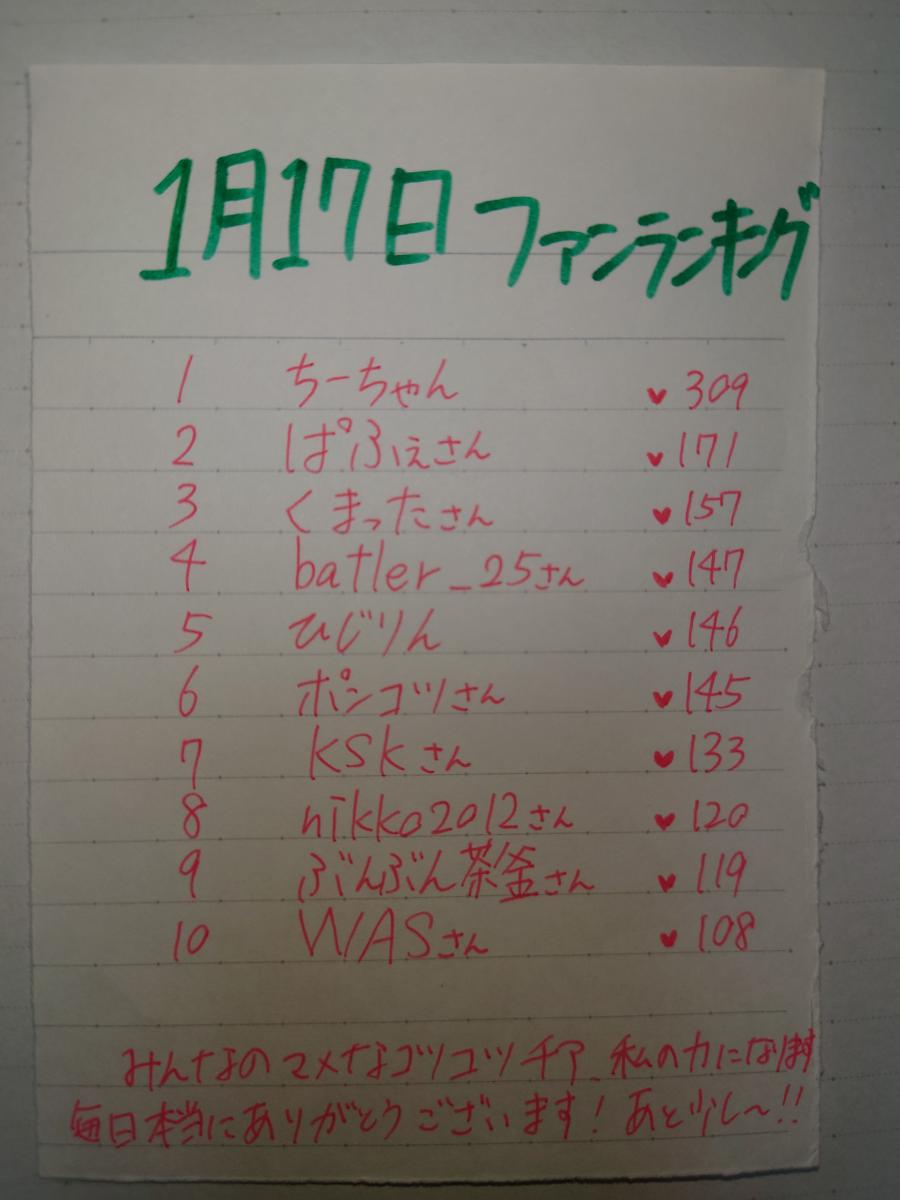 1月17日 ファンランキング
1 ちーちゃん ♥ 309
2 ぱふぇさん ♥ 171
3 くまったさん ♥ 157
4 batler_25さん ♥ 147
5 ひじりん ♥ 146
6 ポンコツさん ♥ 145
7 kskさん ♥ 133
8 nikko2012さん ♥ 120
9 ぶんぶん茶釜さん ♥ 119
10 WASさん ♥ 108
みんなのマメなコツコツチア、私の力になります
毎日本当にありがとうございます！あと少し〜!!